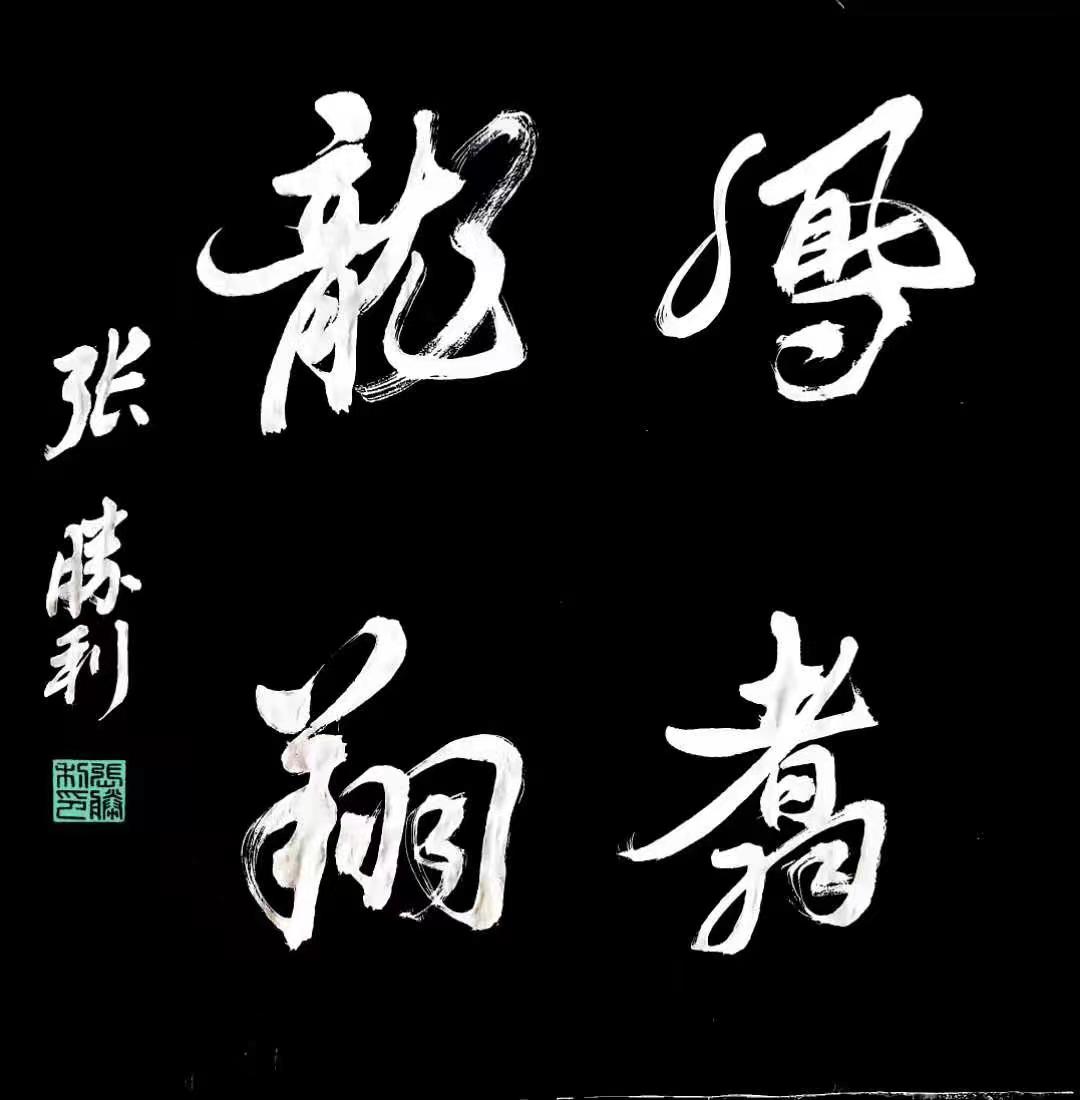 鳳翥
龍翔
张勝利
張勝利印